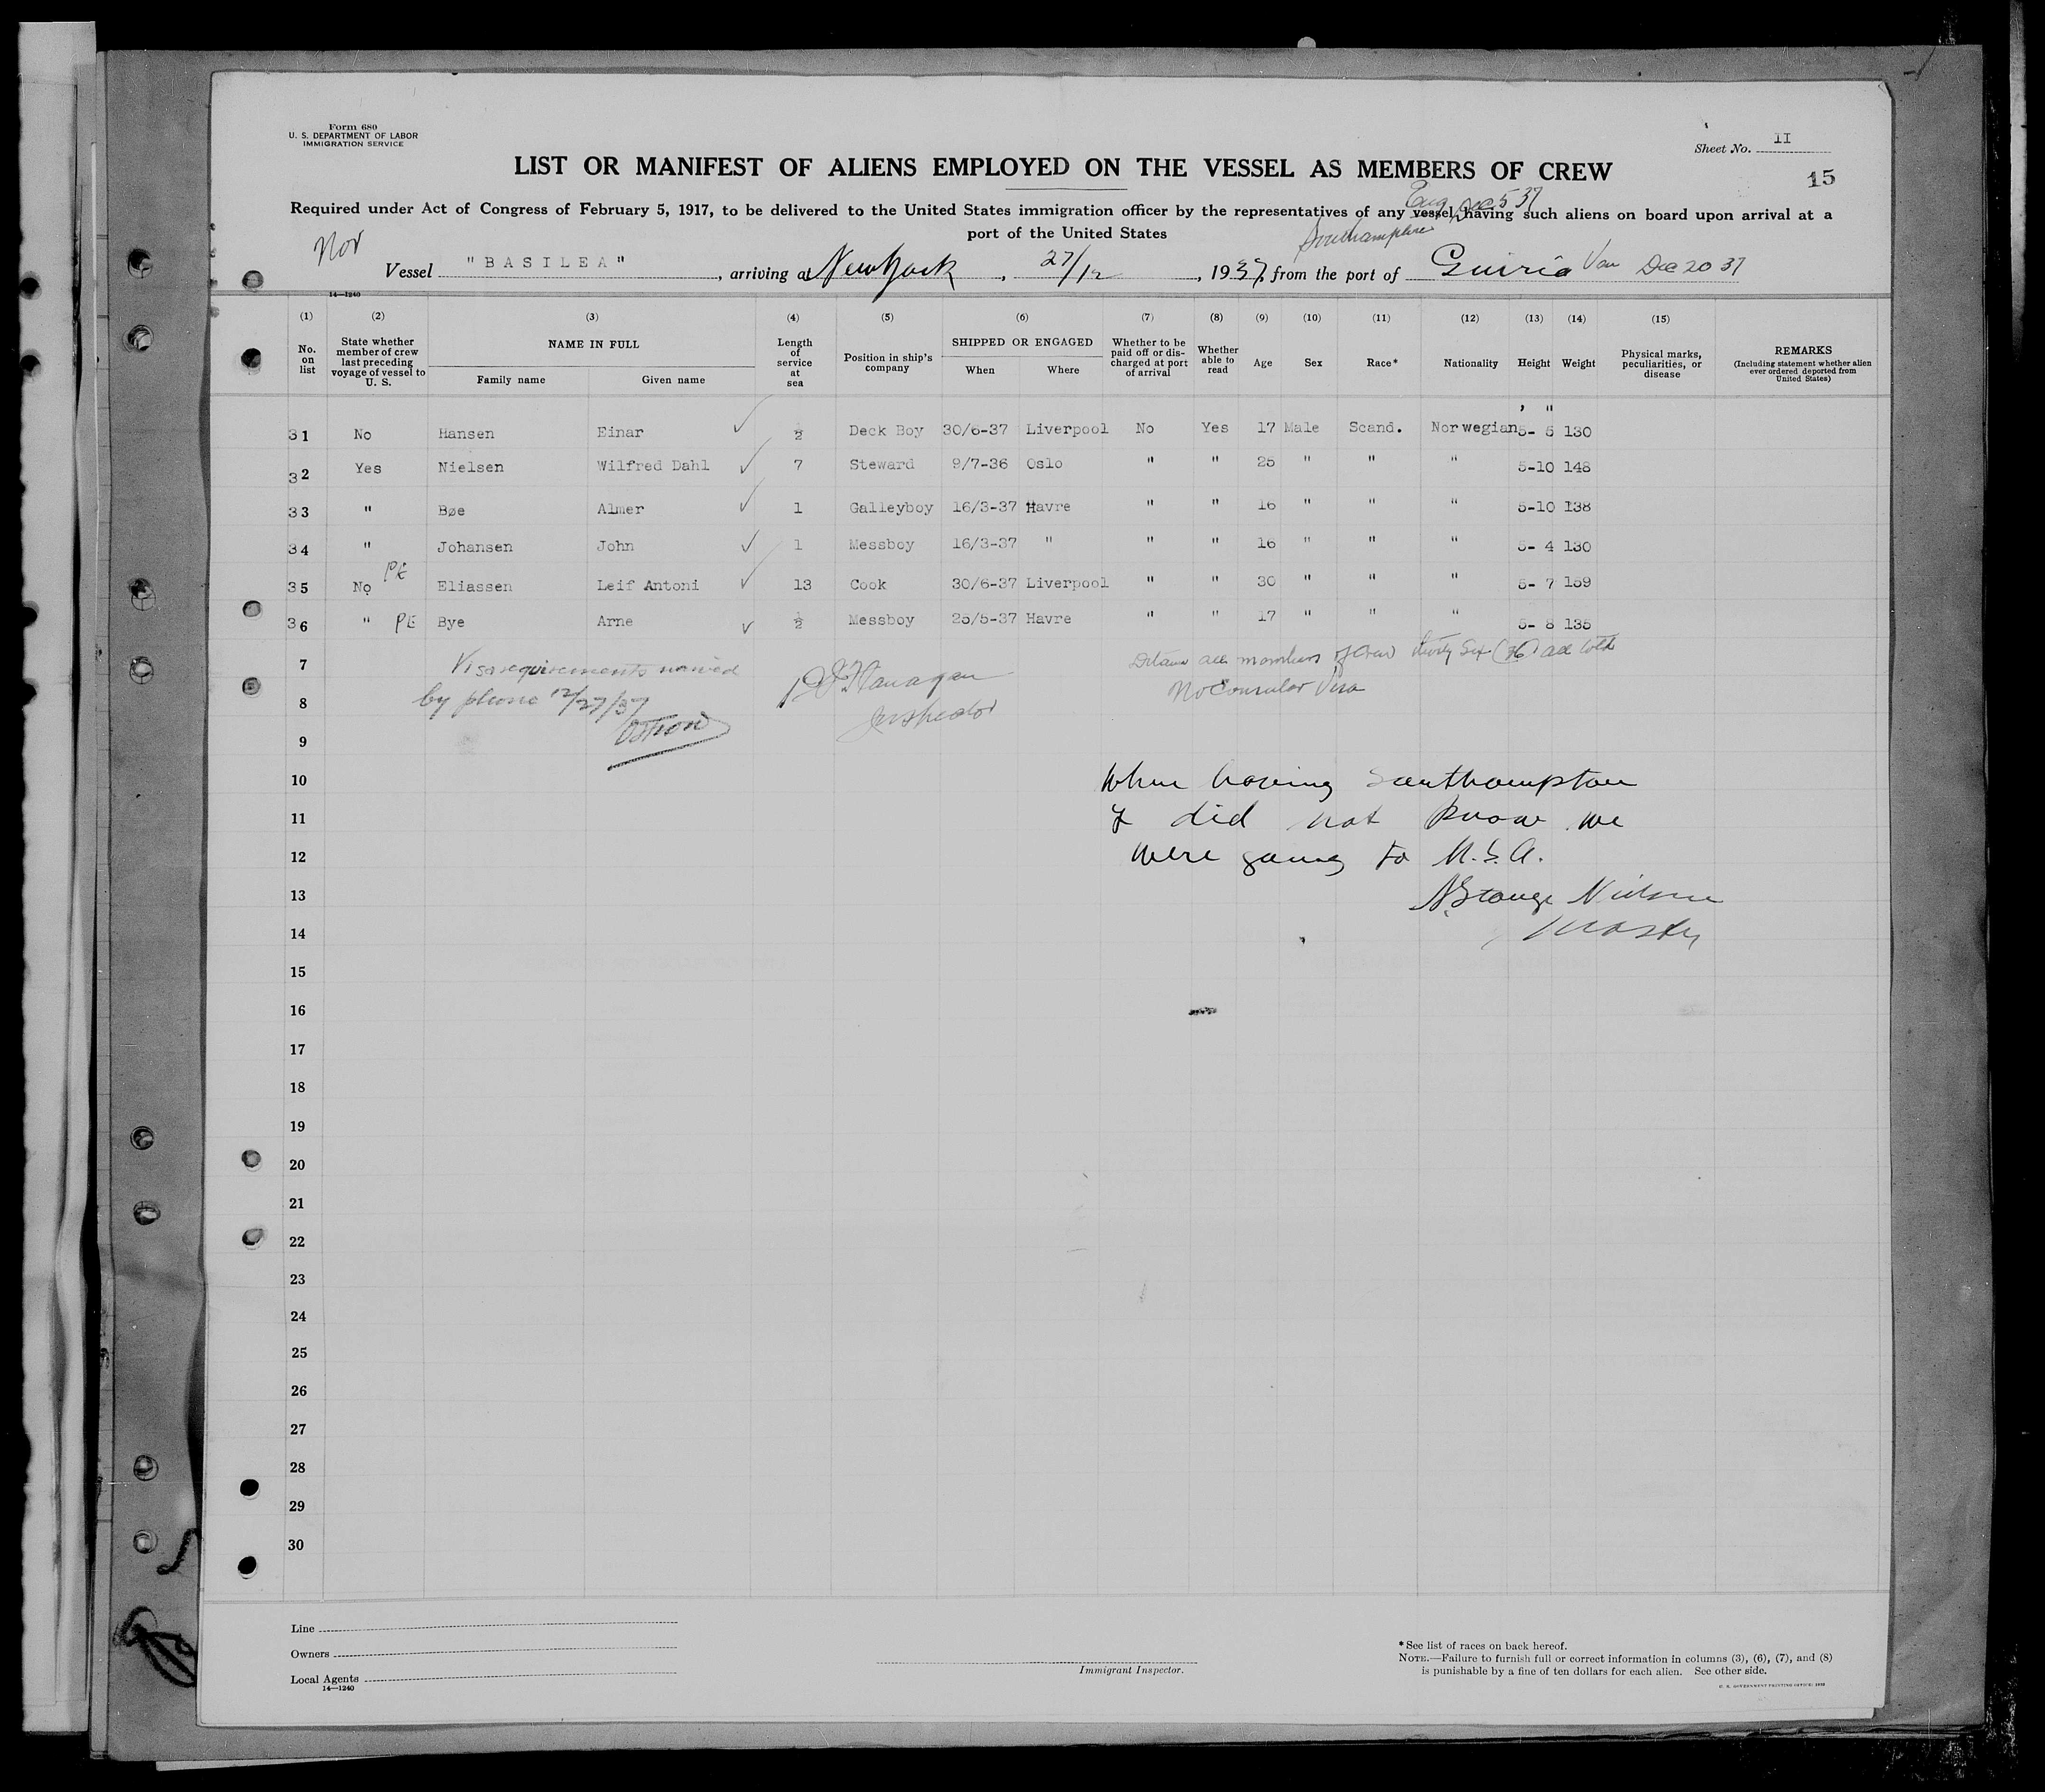 Form 680
U. S. DEPARTMENT OF LABOR
IMMIGRATION SERVICE
Sheet No. II
LIST OR MANIFEST OF ALIENS EMPLOYED ON THE VESSEL AS MEMBERS OF CREW
15
Eng Dec 5 37
Required under Act of Congress of February 5, 1917, to be delivered to the United States immigration officer by the representatives of any vessel having such aliens on board upon arrival at a
port of the United States
Nor
Southampton
Vessel "BASILEA", arriving at New York, 27/12, 1937, from the port of Guiria Dec 20 37
14—1240
(1) (2) (3) (4) (5) (6) (7) (8) (9) (10) (11) (12) (13) (14) (15)
No. on list
State whether member of crew last preceding voyage of vessel to U. S.
NAME IN FULL
Family name Given name
Length of service at sea
Position in ship's company
SHIPPED OR ENGAGED
When Where
Whether to be paid off or discharged at port of arrival
Whether able to read
Age Sex Race* Nationality Height Weight
Physical marks, peculiarities, or disease
REMARKS
(Including statement whether alien ever ordered deported from United States)
' "
31 No Hansen Einar ✓ ½ Deck Boy 30/6-37 Liverpool No Yes 17 Male Scand. Norwegian 5- 5 130
32 Yes Nielsen Wilfred Dahl ✓ 7 Steward 9/7-36 Oslo " " 25 " " " 5-10 148
33 " Bøe Almer ✓ 1 Galleyboy 16/3-37 Havre " " 16 " " " 5-10 138
34 " Johansen John ✓ 1 Messboy 16/3-37 " " " 16 " " " 5- 4 130
35 No PE Eliassen Leif Antoni ✓ 13 Cook 30/6-37 Liverpool " " 30 " " " 5- 7 159
36 " PE Bye Arne ✓ ½ Messboy 25/5-37 Havre " " 17 " " " 5- 8 135
7 Visa requirements waived Flanagan Detain all members of crew thirty six (36) all told
8 by phone 12/27/37 Inspector No Consular Visa
9
10 When leaving Southampton
11 I did not know we
12 were going to U.S.A.
13 Nielsen
14 Master
15
16
17
18
19
20
21
22
23
24
25
26
27
28
29
30
Line
Owners
Local Agents
14—1240
Immigrant Inspector.
* See list of races on back hereof.
NOTE.—Failure to furnish full or correct information in columns (3), (6), (7), and (8)
is punishable by a fine of ten dollars for each alien. See other side.